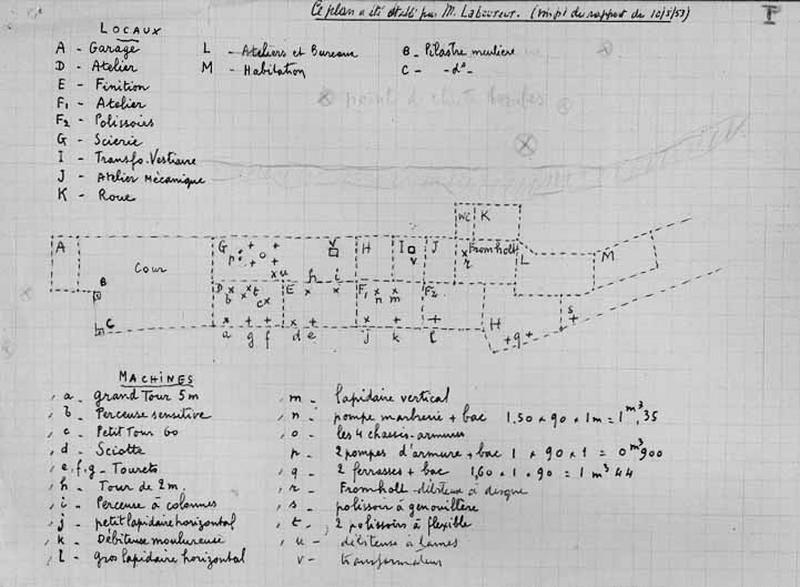 Ce plan a été établi par M. Laboureur. (voir p1 du rapport du 10/5/53)
I
LOCAUX
A - Garage
D - Atelier
E - Finition
F1 - Atelier
F2 - Polissoirs
G - Scierie
I - Transfo. Vestiaire
J - Atelier Mécanique
K - Roue
L - Ateliers et Bureaux
M - Habitation
B - Pilastre meulière
C - -d°-
point de chute bombes
WC K
A Cour G p o u h i v H I v J r Fromholt L M
B D b t c E F1 n m F2 H s
C a g f d e j k l q
MACHINES
a - grand Tour 5m
b - Perceuse sensitive
c - Petit Tour 60
d - Sciotte
e.f.g - Tourets
h - Tour de 2m.
i - Perceuse à colonnes
j - petit lapidaire horizontal
k - Débiteuse moulureuse
l - gros lapidaire horizontal
m - lapidaire vertical
n - pompe marbrerie + bac 1.50 x 90 x 1m = 1m³,35
o - les 4 chassis-armures
p - 2 pompes d'armure + bac 1 x 90 x 1 = 0m³900
q - 2 ferrasses + bac 1,60 x 1 x 90 = 1m³44
r - Fromholt - débiteux à disque
s - polissoir à genouillère
t - 2 polissoirs à flexible
u - débiteuse à lames
v - transformateur